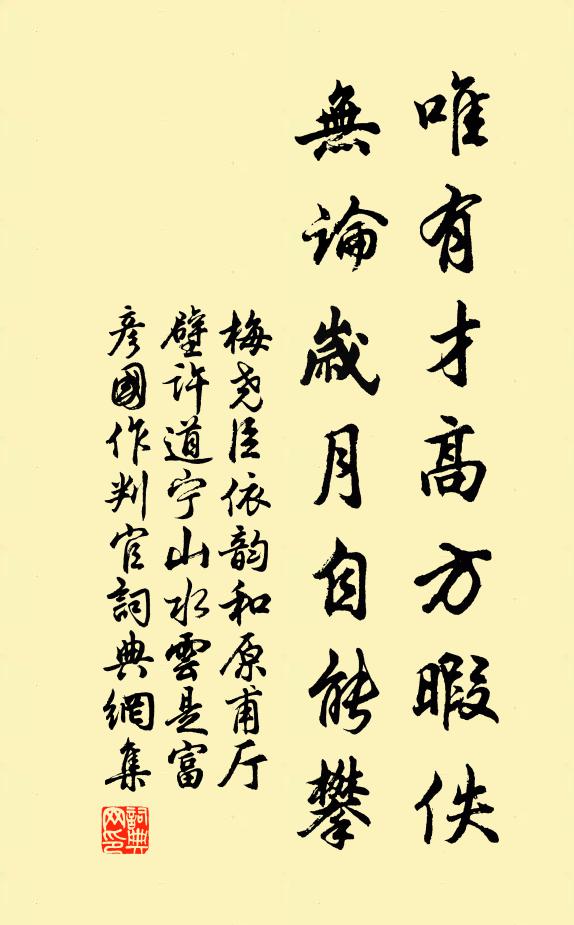 唯有才高方暇佚
無論歲月自能攀
梅尧臣依韵和原甫厅
壁許道宁山水雲是富
彦國作判官詞典網集
詞典
网印